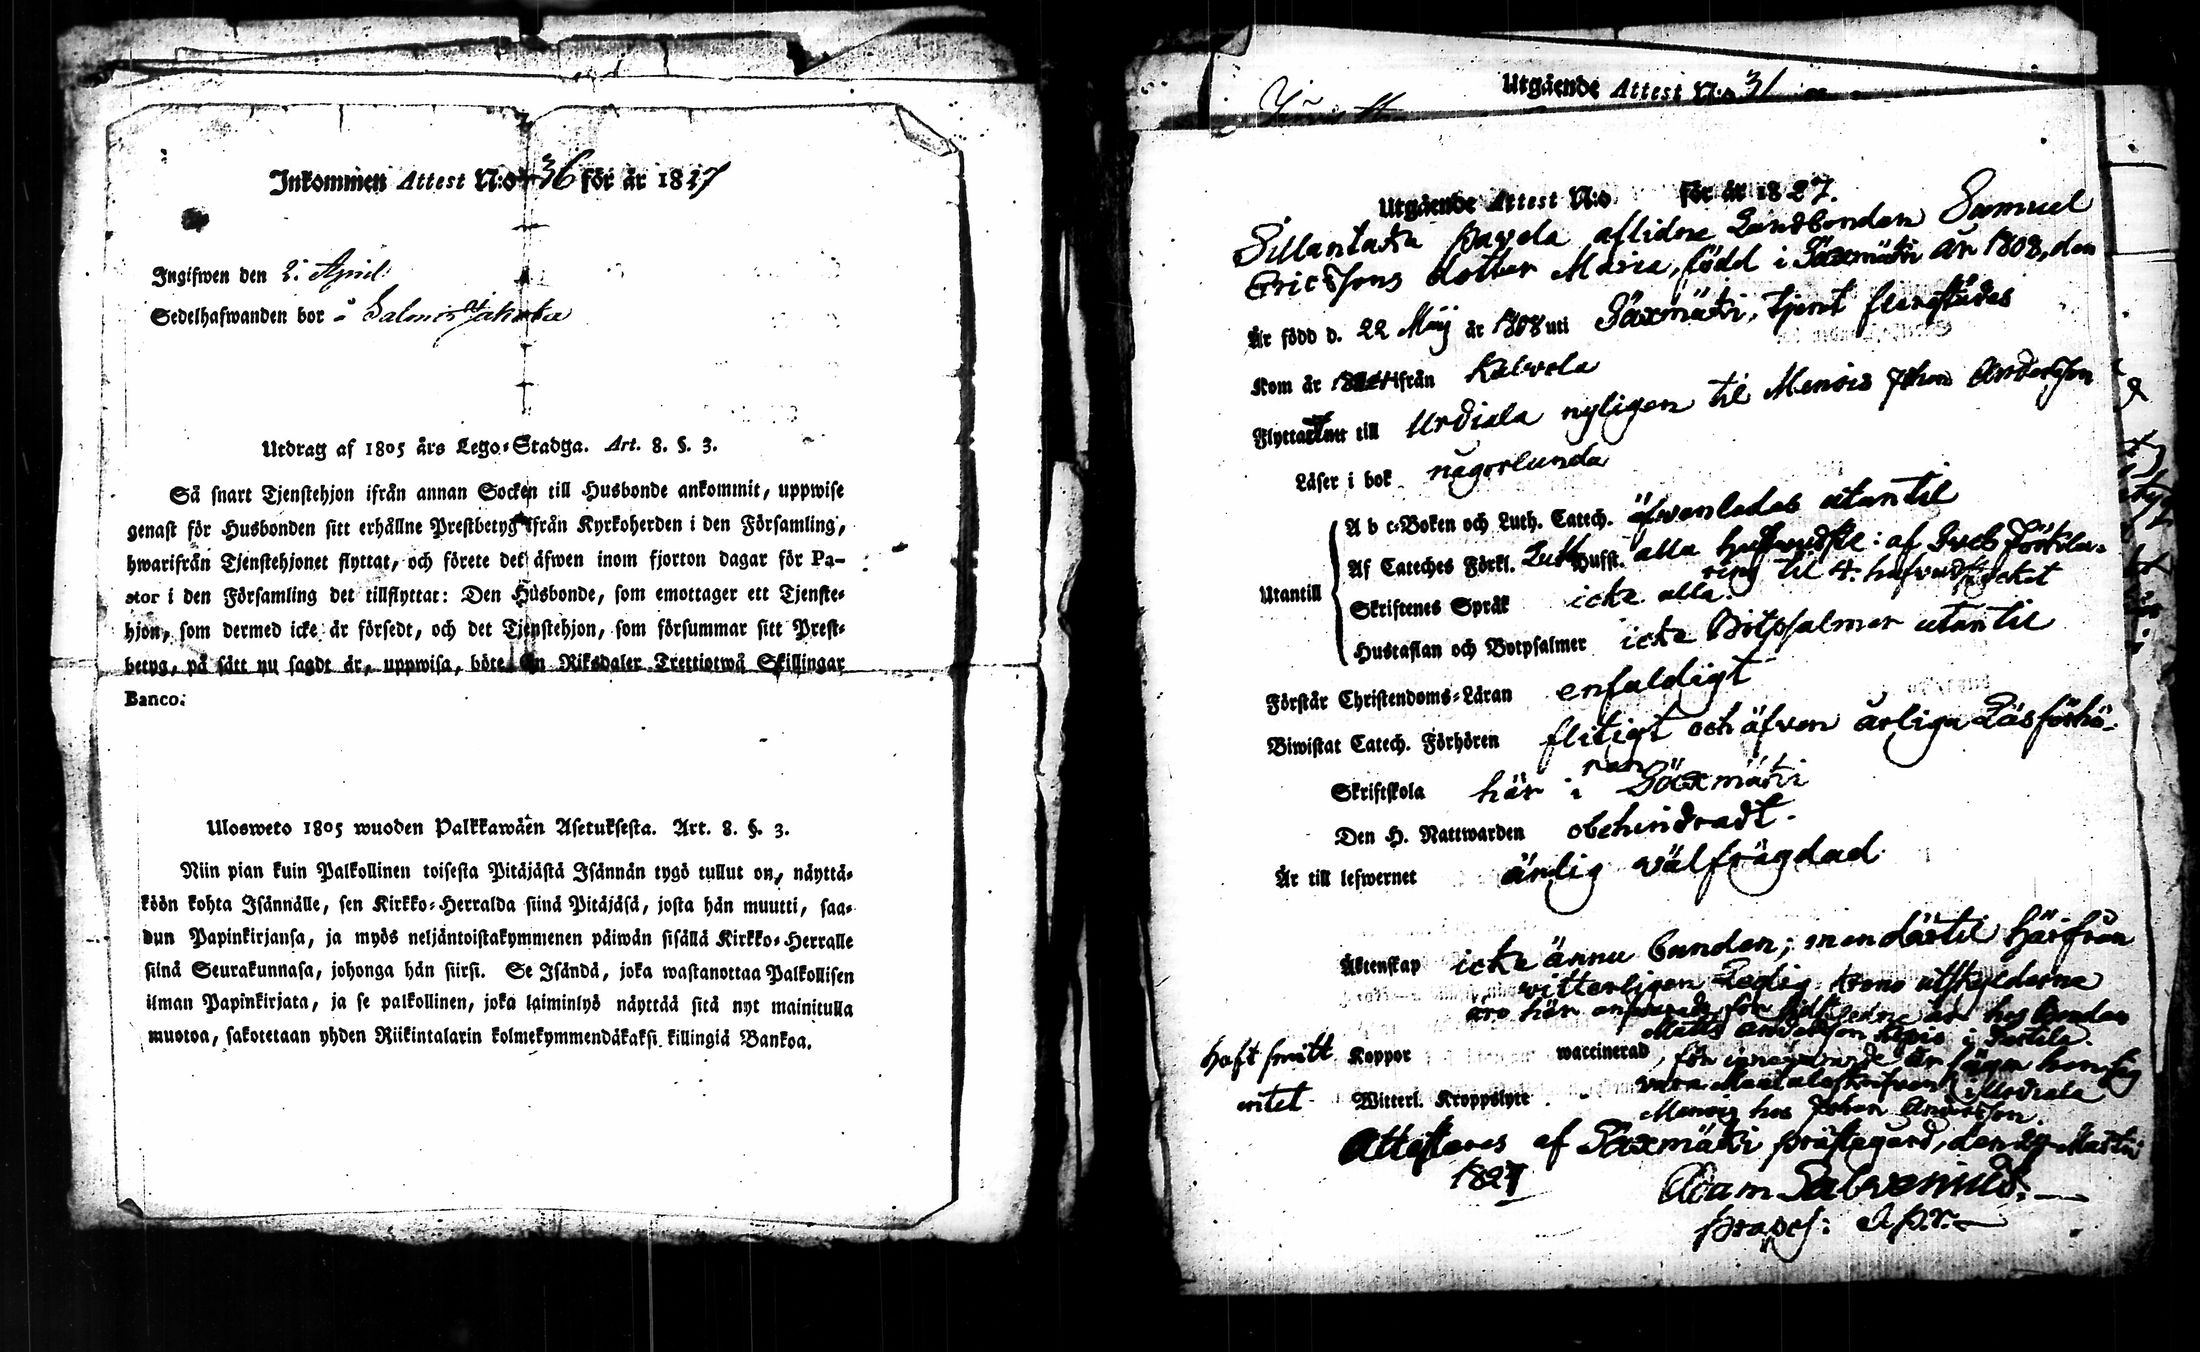 Inkommen Attest N:o 36 för år 1827
Ingifwen den 2. April
Sedelhafwanden bor å Salmis
Utdrag af 1805 års Lego-Stadga. Art. 8. §. 3.
Så snart Tjenstehjon ifrån annan Socken till Husbonde ankommit, uppwise
genast för Husbonden sitt erhållne Prestbetyg ifrån Kyrkoherden i den Församling,
hwarifrån Tjenstehjonet flyttat, och förete det äfwen inom fjorton dagar för Pa-
stor i den Församling det tillflyttat: Den Husbonde, som emottager ett Tjenste-
hjon, som dermed icke är försedt, och det Tjenstehjon, som försummar sitt Prest-
betyg, på sätt nu sagdt är, uppwisa, böte En Riksdaler Trettiotwå Skillingar
Banco.
Ulosweto 1805 wuoden Palkkawäen Asetuksesta. Art. 8. §. 3.
Niin pian kuin Palkollinen toisesta Pitäjästä Isännän tygö tullut on, näyttä-
köön kohta Isännälle, sen Kirkko-Herralda siinä Pitäjäsä, josta hän muutti, saa-
dun Papinkirjansa, ja myös neljäntoistakymmenen päiwän sisällä Kirkko-Herralle
siinä Seurakunnasa, johonga hän siirsi. Se Isändä, joka wastanottaa Palkollisen
ilman Papinkirjata, ja se palkollinen, joka laiminlyö näyttää sitä nyt mainitulla
muotoa, sakotetaan yhden Riikintalarin kolmekymmendäkaksi killingiä Bankoa.
Utgående Attest N:o 31
Utgående Attest N:o för år 1827.
Sillantaka Pavela aflidne Landbonden Samuel
Ericssons dotter Maria, född i Säxmäki år 1808, den
Är född d. 22 Maij år 1808 uti Säxmäki, tjent flerstädes
Kom år ifrån Kalvola
Flyttar till Urdiala nyligen til Menois Johan Andersson
Läser i bok någorlunda
Utantill
A b c-Boken och Luth. Catech. äfvenledes utantil
Af Cateches Förkl. Hufst. alla hufvudst: af Sveb. Förkla-
ring til 4. hufvudstycket
Skriftenes Språk icke alla.
Hustaflan och Botpsalmer icke Botpsalmer utantil
Förstår Christendoms-Läran enfaldigt
Biwistat Catech. Förhören flitigt och äfven årliga Läsförhö-
ren
Skriftskola här i Säxmäki
Den H. Nattwarden obehindradt.
Är till lefwernet ärlig välfrägdad
Ächtenskap icke ännu bunden; men därtil härifrån
vitterligen Ledig. Krono utskylderne
äro här hos Bonden
Matts Andersson i
haft smitt Koppor waccinerad för innevarande år säger hon sig
vara Mantalsskrifven i Urdiala
intet Witterl. Kroppslyte Menois hos Johan Andersson.
Attesteras af Säxmäki prästegård, den 29 Martii
1827
Adam Salvenius.